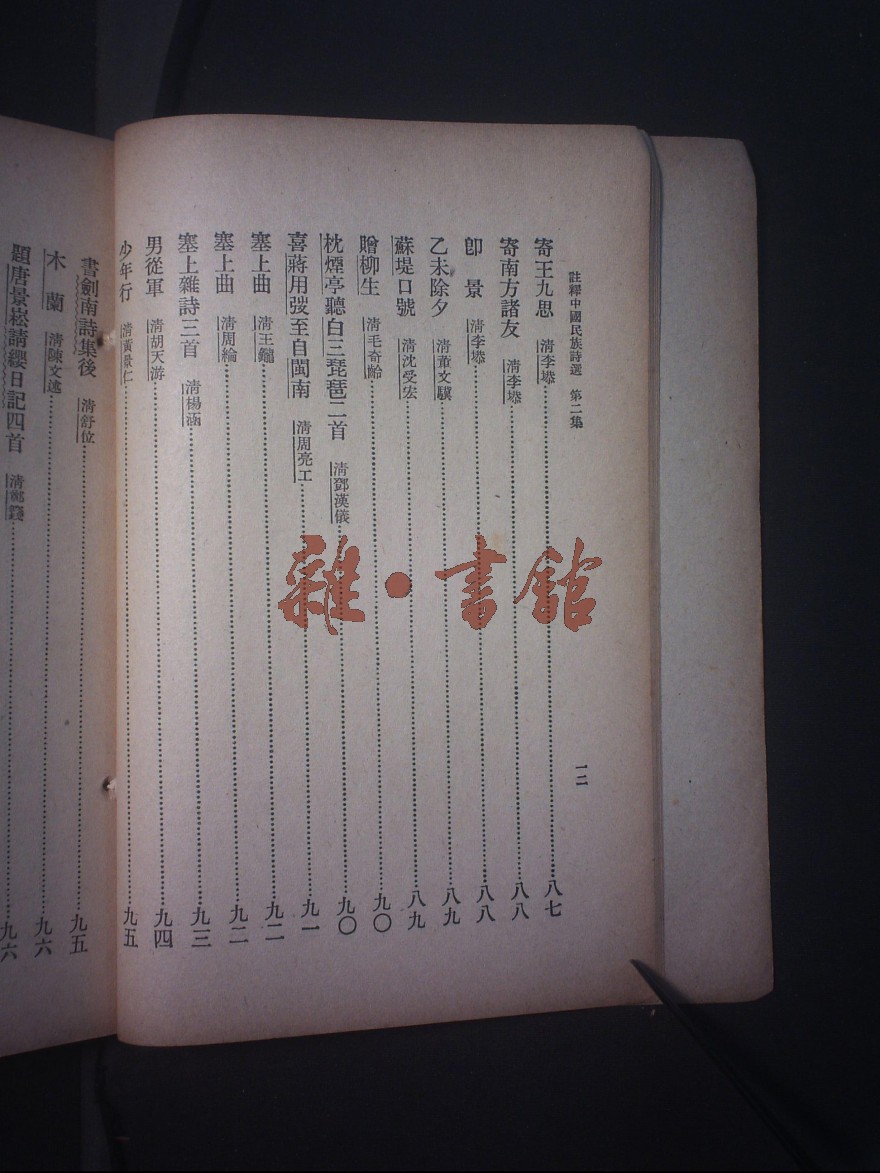 註釋中國民族詩選 第二集
一二
寄王九思 清李塨……八七
寄南方諸友 清李塨……八八
卽景 清李塨……八八
乙未除夕 清董文驥……八九
蘇堤口號 清沈受宏……八九
贈柳生 清毛奇齡……九〇
枕煙亭聽白三琵琶二首 清鄧漢儀……九〇
喜蔣用弢至自閩南 清周亮工……九一
塞上曲 清王鑨……九二
塞上曲 清周綸……九二
塞上雜詩三首 清楊涵……九三
男從軍 清胡天游……九四
少年行 清黃景仁……九五
書劍南詩集後 清舒位……九五
木蘭 清陳文述……九六
題唐景崧請纓日記四首 清……九六
雜·書館